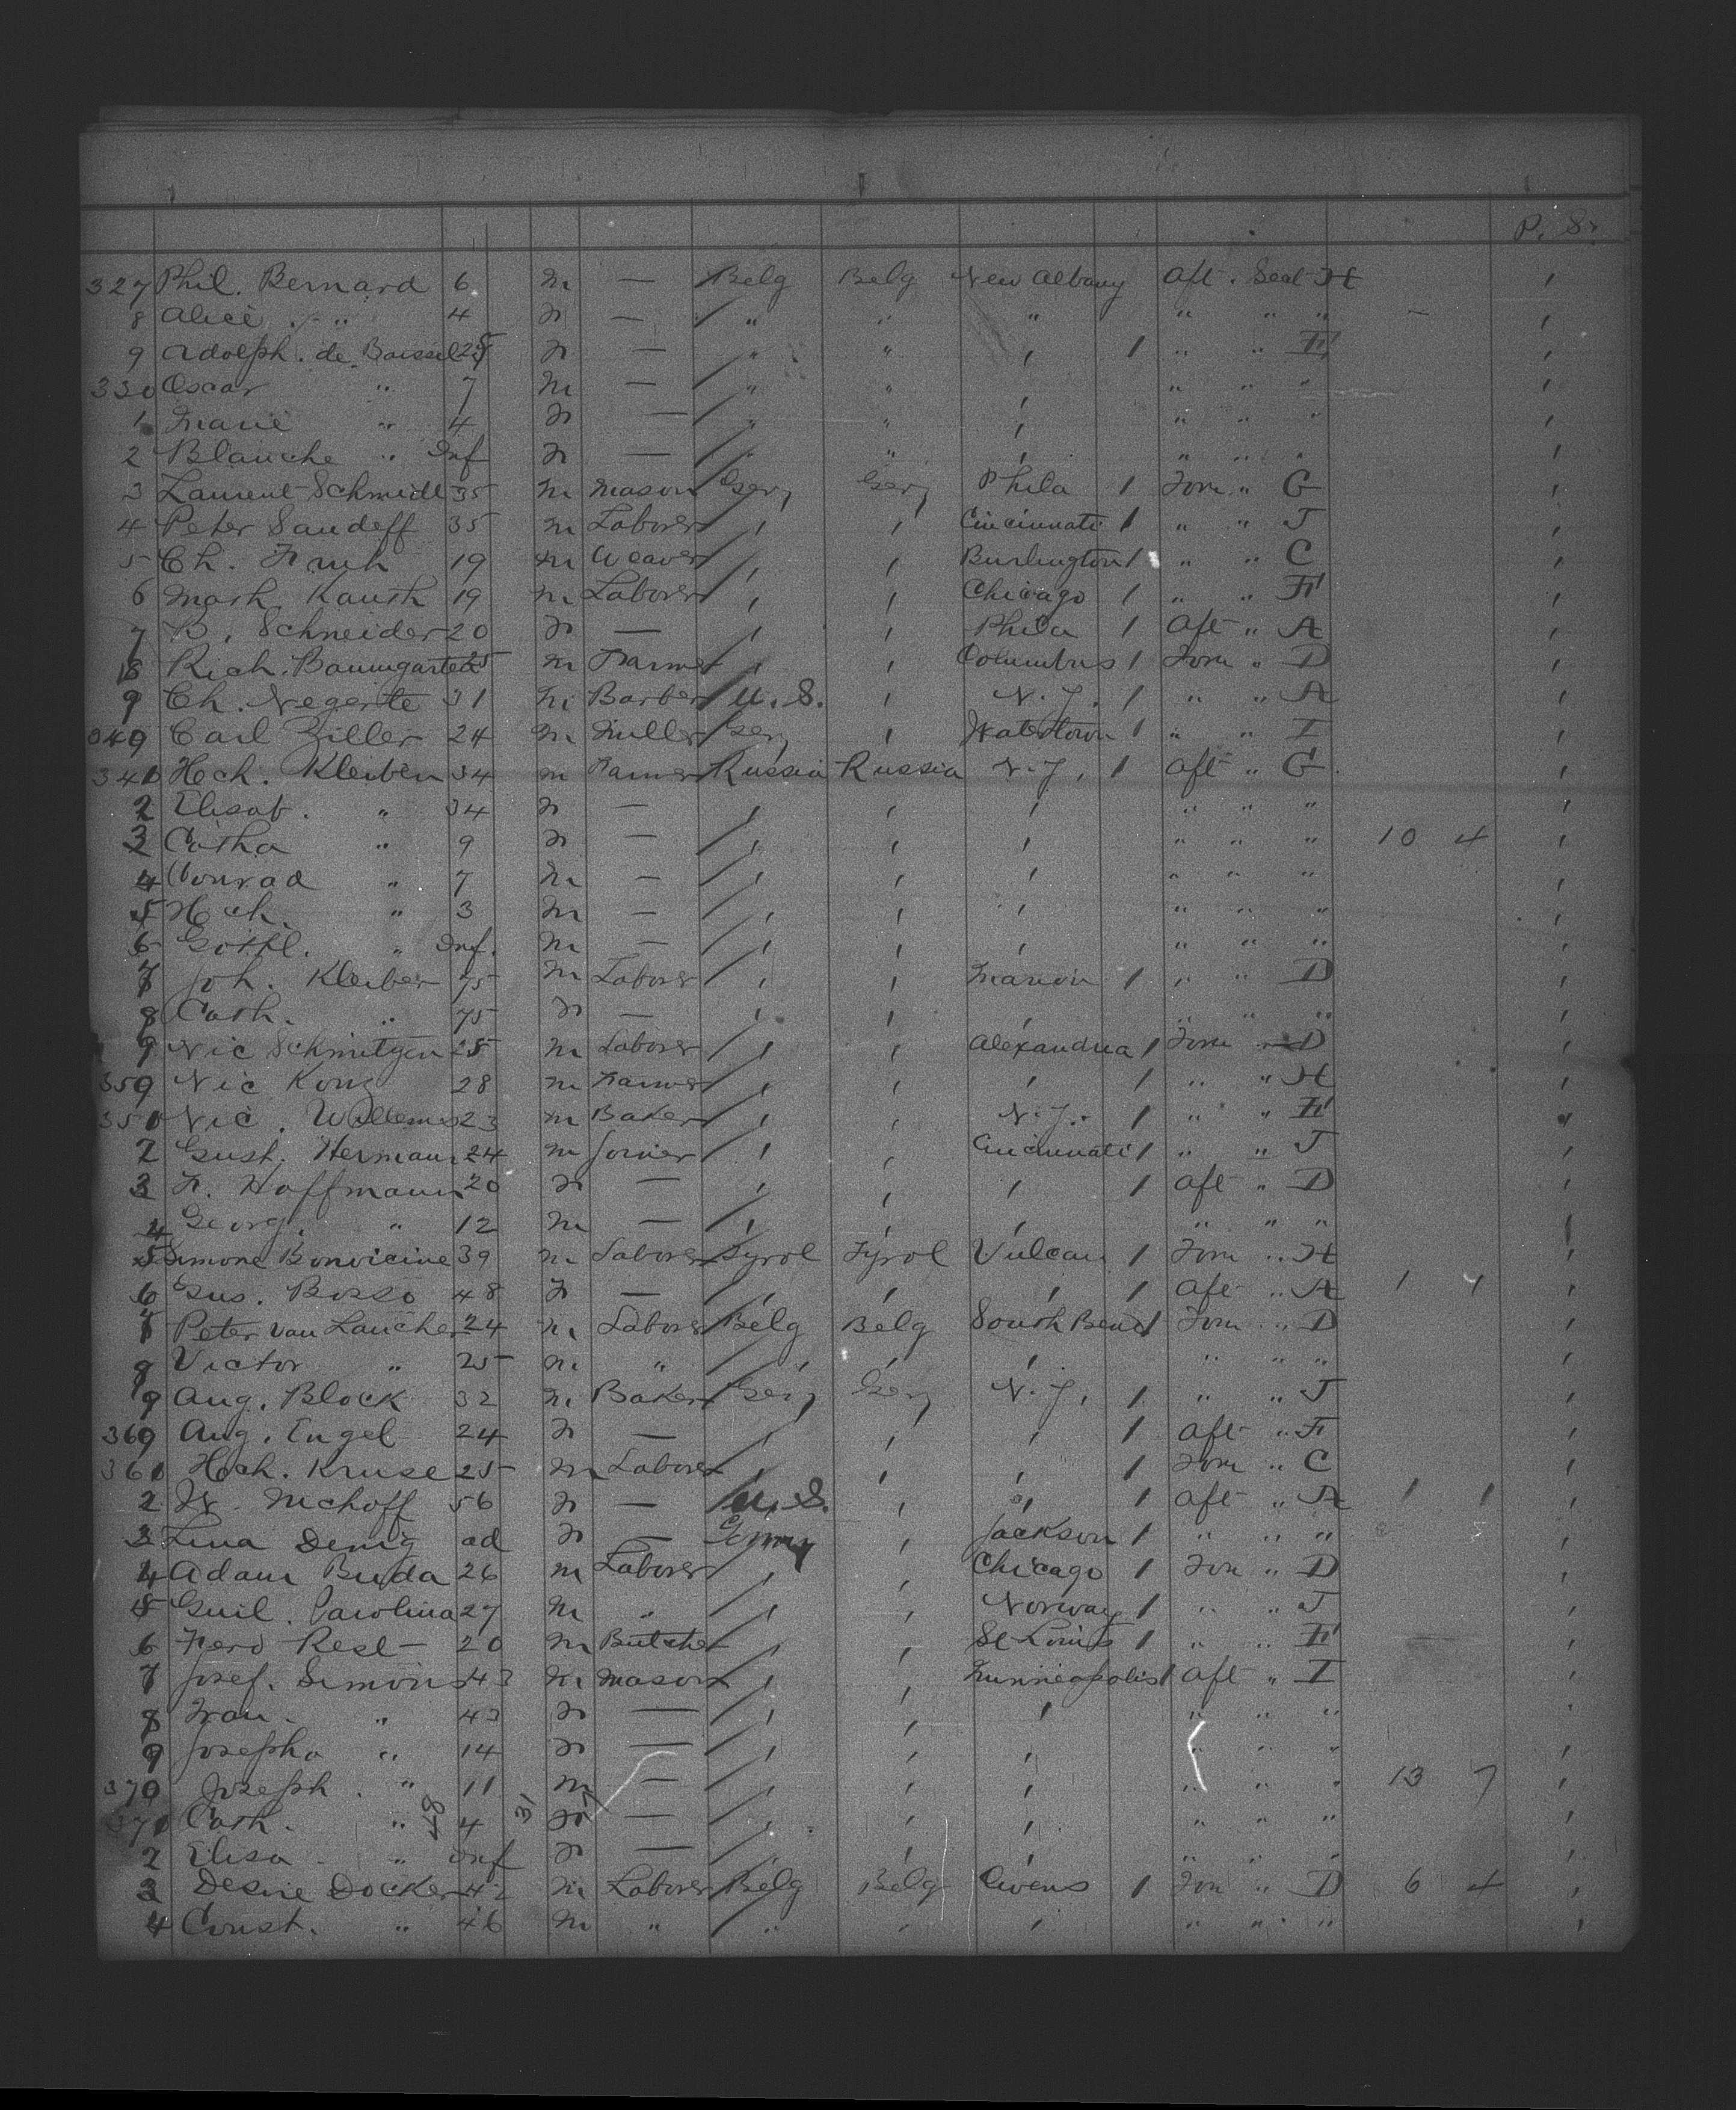 P. Sr
327 Phil. Bernard 6 m — Belg Belg New Albany Aft. Seat H
8 Alice " 4 f — " " " " " "
9 Adolph. de Boissel 25 f — " " , 1 " " E
330 Oscar " 7 m — " " , " " "
1 Marie " 4 f — " " , " " "
2 Blanche " Inf f — " " , " " "
3 Laurent Schmidt 35 m Mason Gery Gery Phila 1 Forw " G
4 Peter Sandeff 35 m Laborer , , Cincinnati 1 " " J
5 Ch. Fruh 19 m Weaver , , Burlington 1 " " C
6 Math Kauth 19 m Laborer , , Chicago 1 " " F
7 B. Schneider 20 f — , , Phila 1 Aft " A
8 Rich. Baumgarten 25 m Farmer , , Columbus 1 Forw " D
9 Ch. Negerte 31 m Barber U.S. , N.Y. 1 " " A
340 Carl Ziller 24 m Miller Gery , Watertown 1 " " I
341 Hch. Kleiben 34 m Farmer Russia Russia N.Y. 1 Aft " G
2 Elisab. " 34 f — , , , " " "
3 Catha " 9 f — , , , " " " 10 4
4 Conrad " 7 m — , , , " " "
5 Hch. " 3 m — , , , " " "
6 Gottl. " Inf. m — , , , " " "
7 Joh. Kleiber 75 m Laborer , , Marion 1 " " D
8 Cath. " 75 f — , , , " " "
9 Nic Schmitgen 25 m Laborer , , Alexandria 1 Forw " D
350 Nic Konz 28 m Farmer , , , 1 " " H
351 Nic. Willems 23 m Baker , , N.Y. 1 " " E
2 Gust. Hermann 24 m Joiner , , Cincinnati 1 " " J
3 F. Hoffmann 20 f — , , , 1 Aft " D
4 Georg. " 12 m — , , , " " "
5 Simone Bonvicine 39 m Laborer Tyrol Tyrol Vulcan 1 Forw " H
6 Gus. Bosso 48 f — , , , 1 Aft " A 1 4
7 Peter Van Laucher 24 m Laborer Belg Belg South Bend 1 Forw " D
8 Victor " 25 m " , , , " " "
9 Aug. Block 32 m Baker Gery Gery N.Y. 1 " " J
360 Aug. Engel 24 f — , , , 1 Aft " F
361 Hch. Kruse 25 m Laborer , , , 1 Forw " C
2 W. Mchoff 56 f — U.S. , , 1 Aft " A 1 1
3 Lina Denig ad f — Germy , Jackson 1 " " "
4 Adam Buda 26 m Laborer , , Chicago 1 Forw " D
5 Guil. Carolina 27 m " , , Norway 1 " " J
6 Ferd Resl 20 m Butcher , , St Louis 1 " " E
7 Josef. Simons 43 m Mason , , Minneapolis 1 Aft " I
8 Fran. " 43 f — , , , " " "
9 Josepha " 14 f — , , , " " "
370 Joseph. " 11 m — , , , " " " 13 7
371 Cath. " 48 4 31 f — , , , " " "
2 Elisa " Inf f — , , , " " "
3 Desire Docker 42 m Laborer Belg Belg Givens 1 Forw " D 6 4
4 Const. " 46 m " " , , " " "